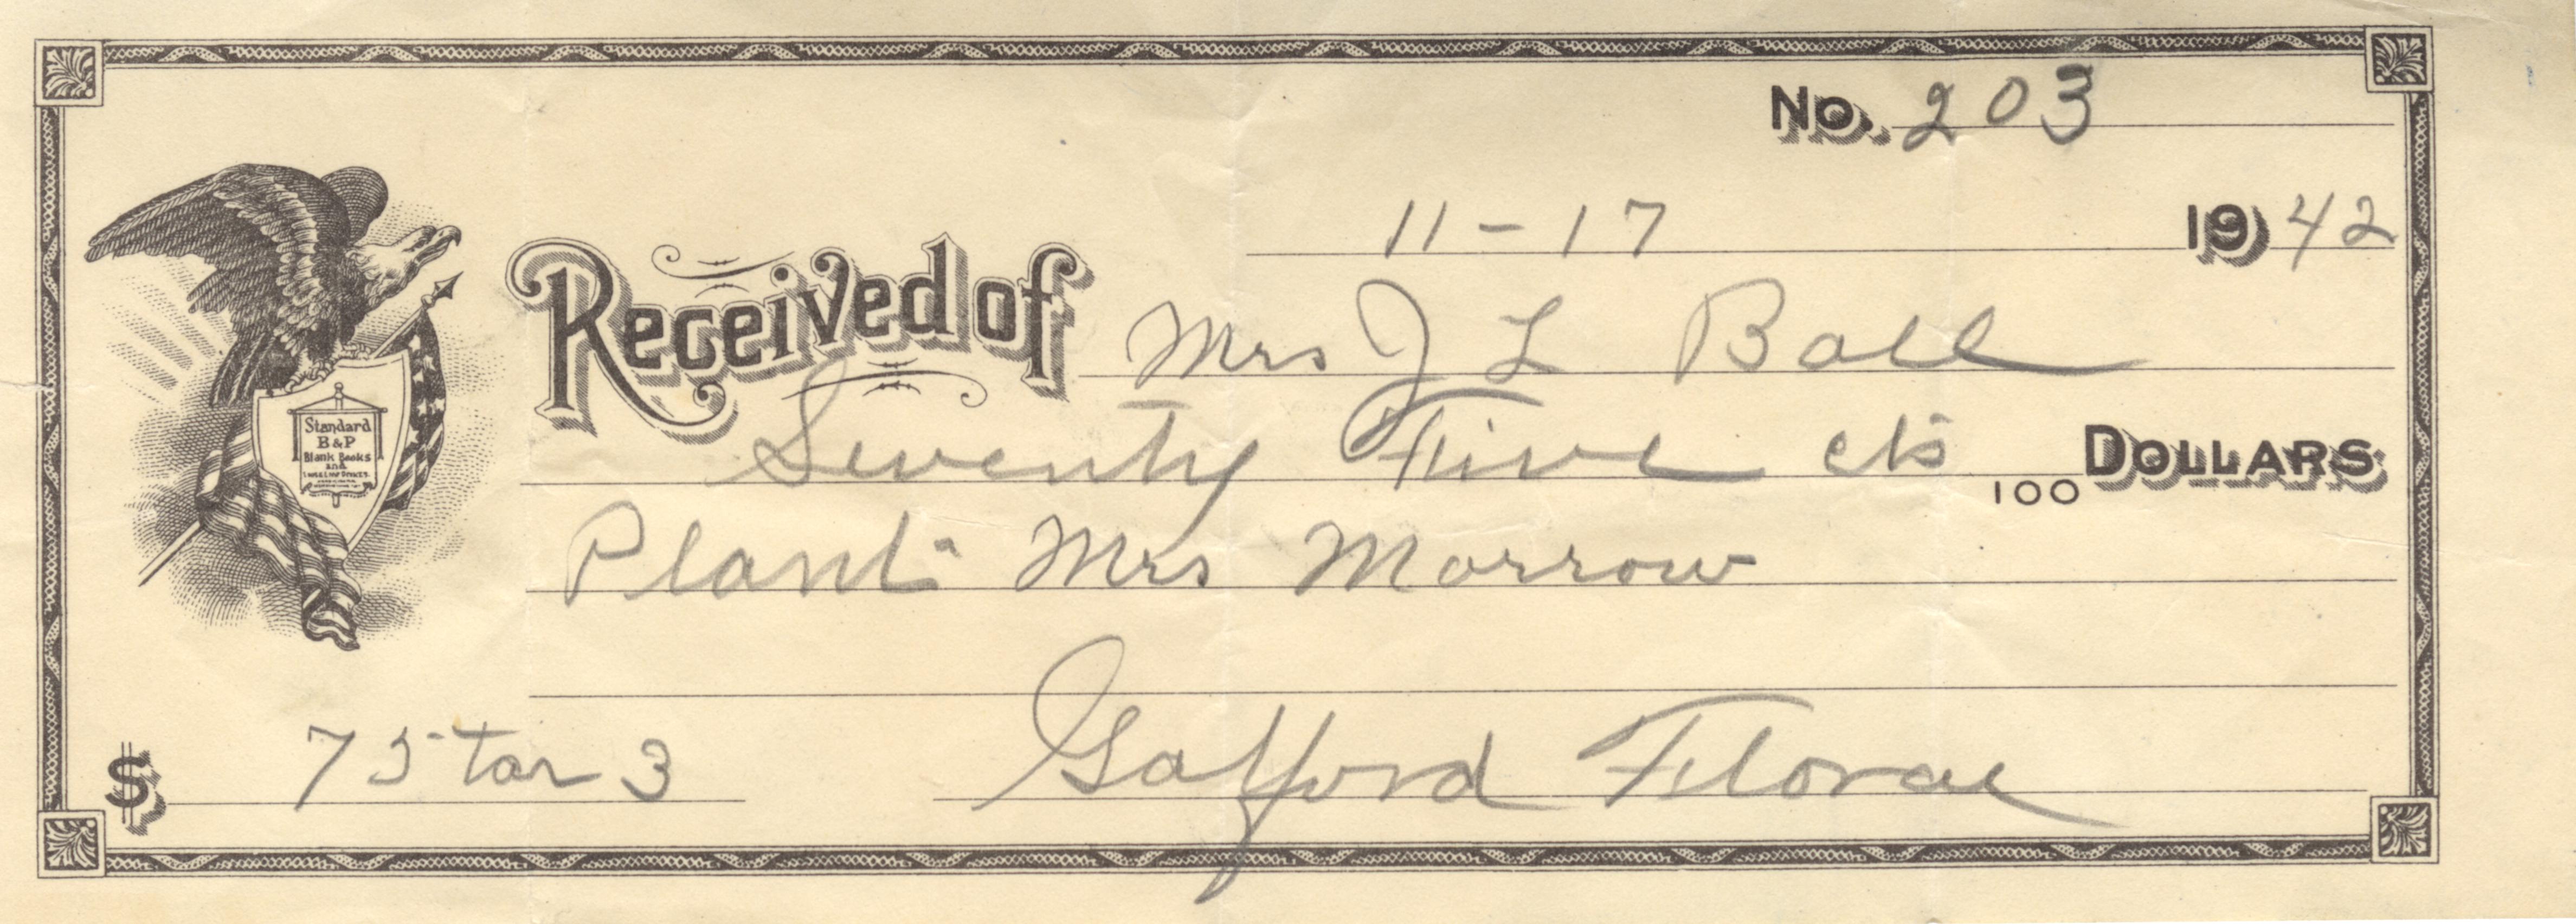 No. 203
11-17 1942
Received of Mrs J L Ball
Seventy Five cts 100 DOLLARS
Plant Mrs Morrow
$ 75 tax 3 Gafford Floral
Standard
B & P
Blank Books
and
Loose Leaf Devices